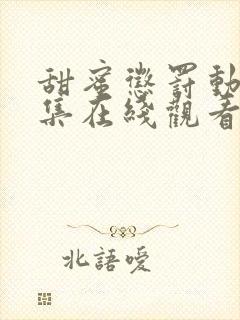 甜蜜懲罰動
集在綫觀看
北語嗳